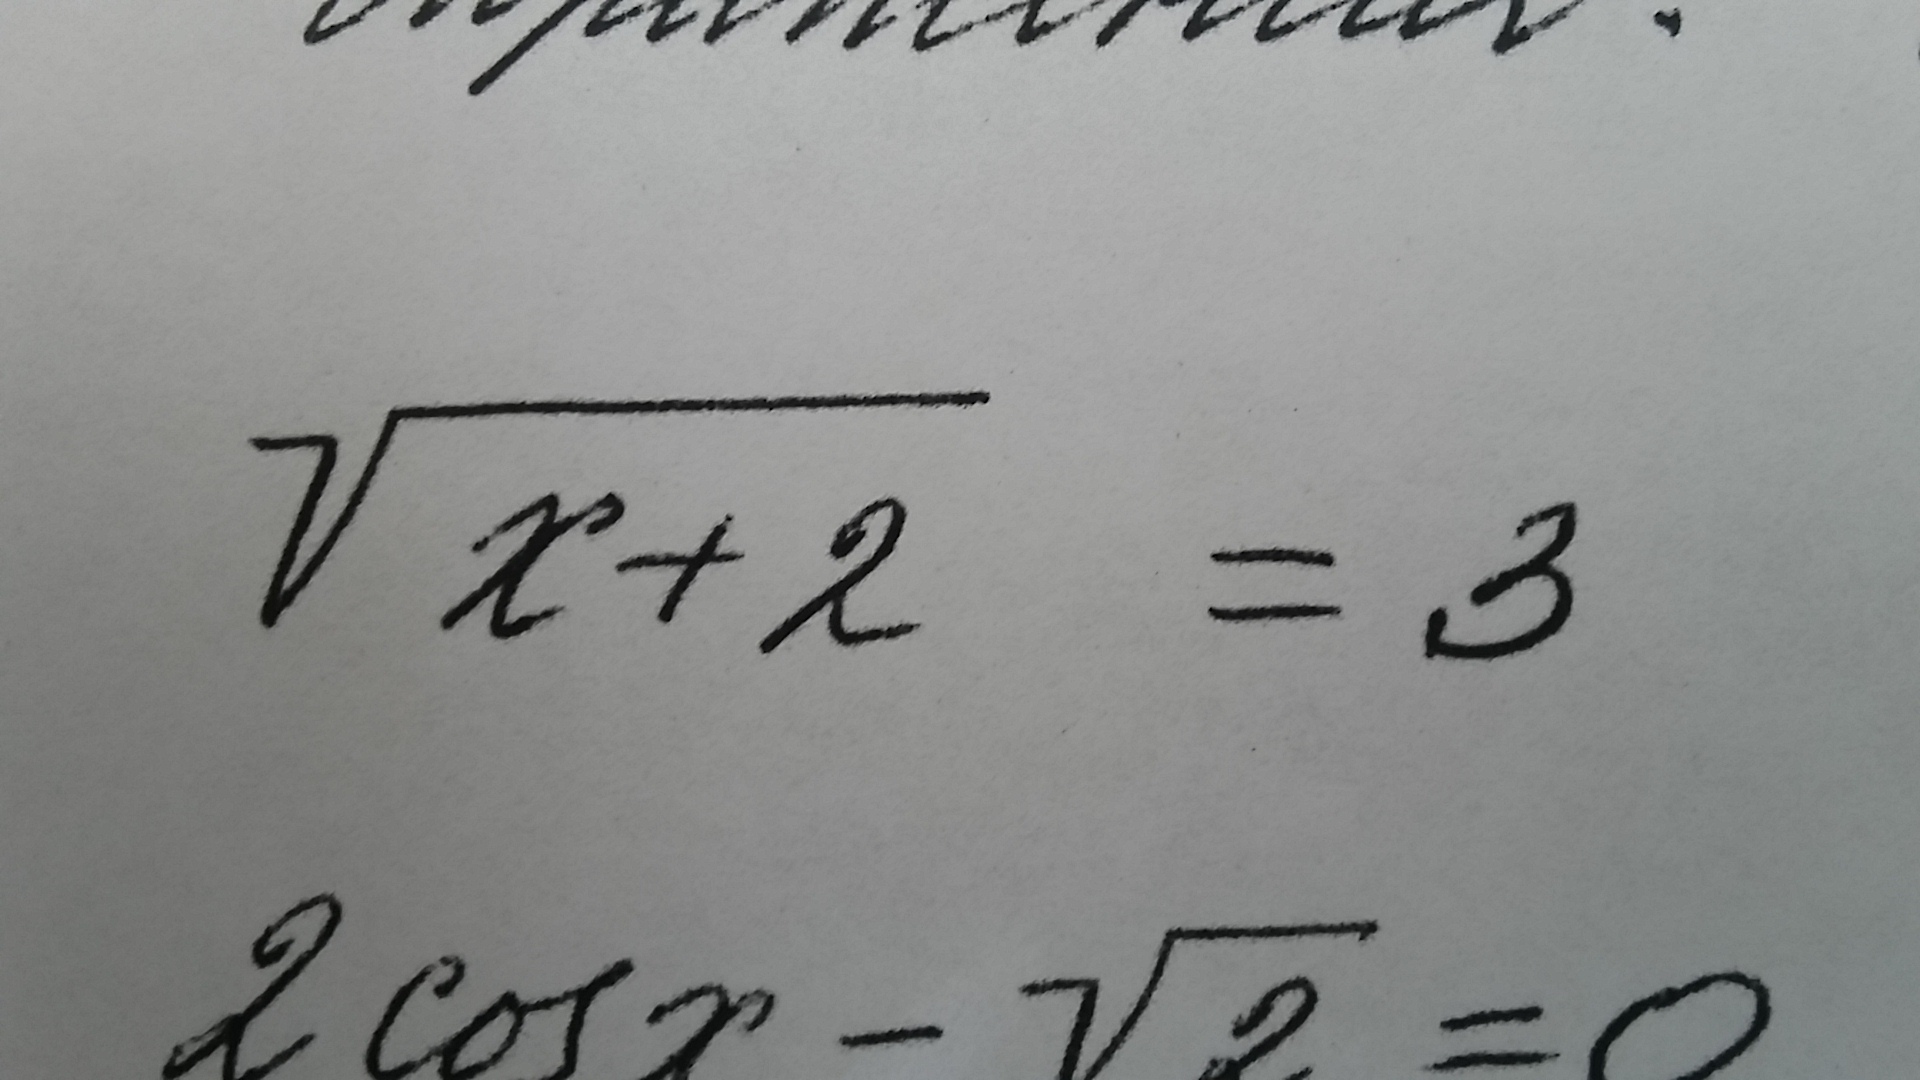 √x+2 = 3
2 cos x - √2 = 0